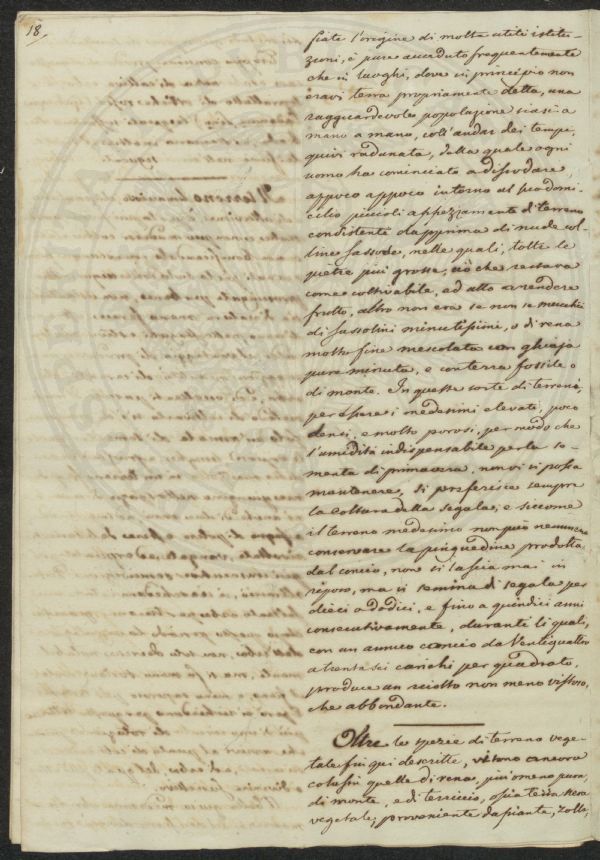 18.
siate l'origine di molte utili istitu-
zioni, è pure accaduto frequentemente
che in luoghi, dove in principio non
eravi terra propriamente detta, una
ragguardevole popolazione siasi a
mano a mano, coll'andar dei tempi,
quivi radunata, della quale ogni
uomo ha cominciato a dissodare
appoco appoco intorno al suo domi-
cilio piccoli appezzamenti di terreno
consistente dapprima di nude col-
line sassose, nelle quali, tolte le
pietre più grosse, ciò che restava
come coltivabile, ed atto a rendere
frutto, altro non era se non se mucchi
di sassolini minutissimi, o di rena
molto fine mescolata con ghiaja
pure minuta, e con terra fossile o
di monte. In questa sorte di terreni,
per essere i medesimi elevati, poco
densi, e molto porosi, per modo che
l'umidità indispensabile per la se-
menta di primavera, non vi si possa
mantenere, si preferisce sempre
la coltura della segala; e siccome
il terreno medesimo non può nemmeno
conservare la pinguedine prodotta
dal concio, non si lascia mai in
riposo, ma si semina di segala per
dieci a dodici, e fino a quindici anni
consecutivamente, durante li quali,
con un annuo concio da Ventiquattro
a trenta sei carichi per quadrato,
produce un ricolto non meno vistoso,
che abbondante.
Oltre le spezie di terreno vege-
tale fin qui descritte, vi sono ancora
quelle di rena, più o meno pura,
di monte, e di terriccio, ossia terra nera
vegetale, proveniente da piante, zolle,